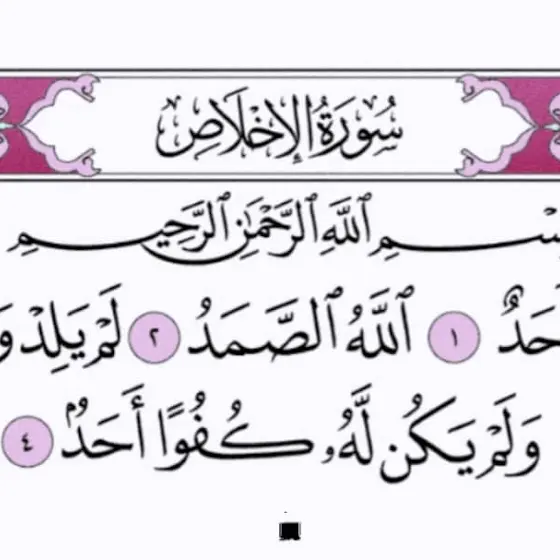 سُورَةُ الإِخْلَاصِ
بِسْمِ ٱللَّهِ ٱلرَّحْمَٰنِ ٱلرَّحِيمِ
حَدٌ ١ ٱللَّهُ ٱلصَّمَدُ ٢ لَمْ يَلِدْ وَ
وَلَمْ يَكُن لَّهُۥ كُفُوًا أَحَدٌۢ ٤